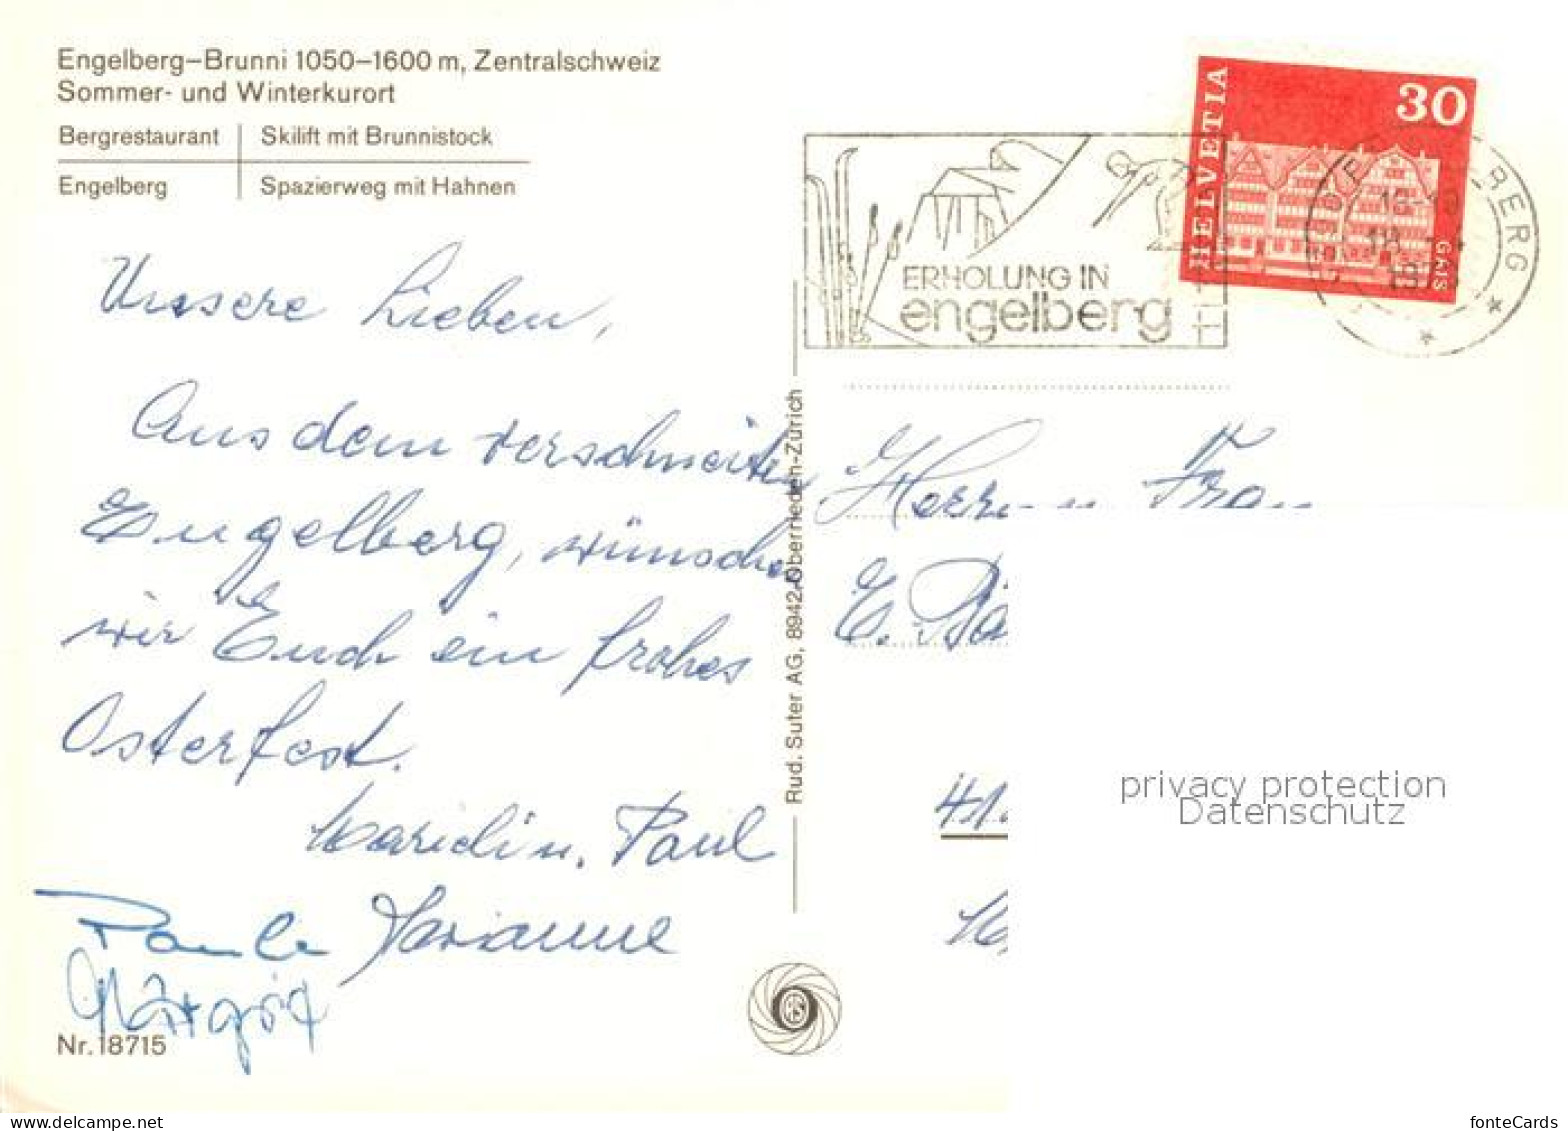 Engelberg–Brunni 1050–1600 m, Zentralschweiz
Sommer- und Winterkurort
Bergrestaurant | Skilift mit Brunnistock
Engelberg | Spazierweg mit Hahnen
Unsere Lieben,
Aus dem verschneiten
Engelberg, wünschen
wir Euch ein frohes
Osterfest.
Paul
Marianne
Nr. 18715
Rud. Suter AG, 8942 Oberrieden-Zürich
ERHOLUNG IN
engelberg
HELVETIA
30
GAIS
BERG
18
Herr u Frau
E.
41
privacy protection
Datenschutz
fonteCards